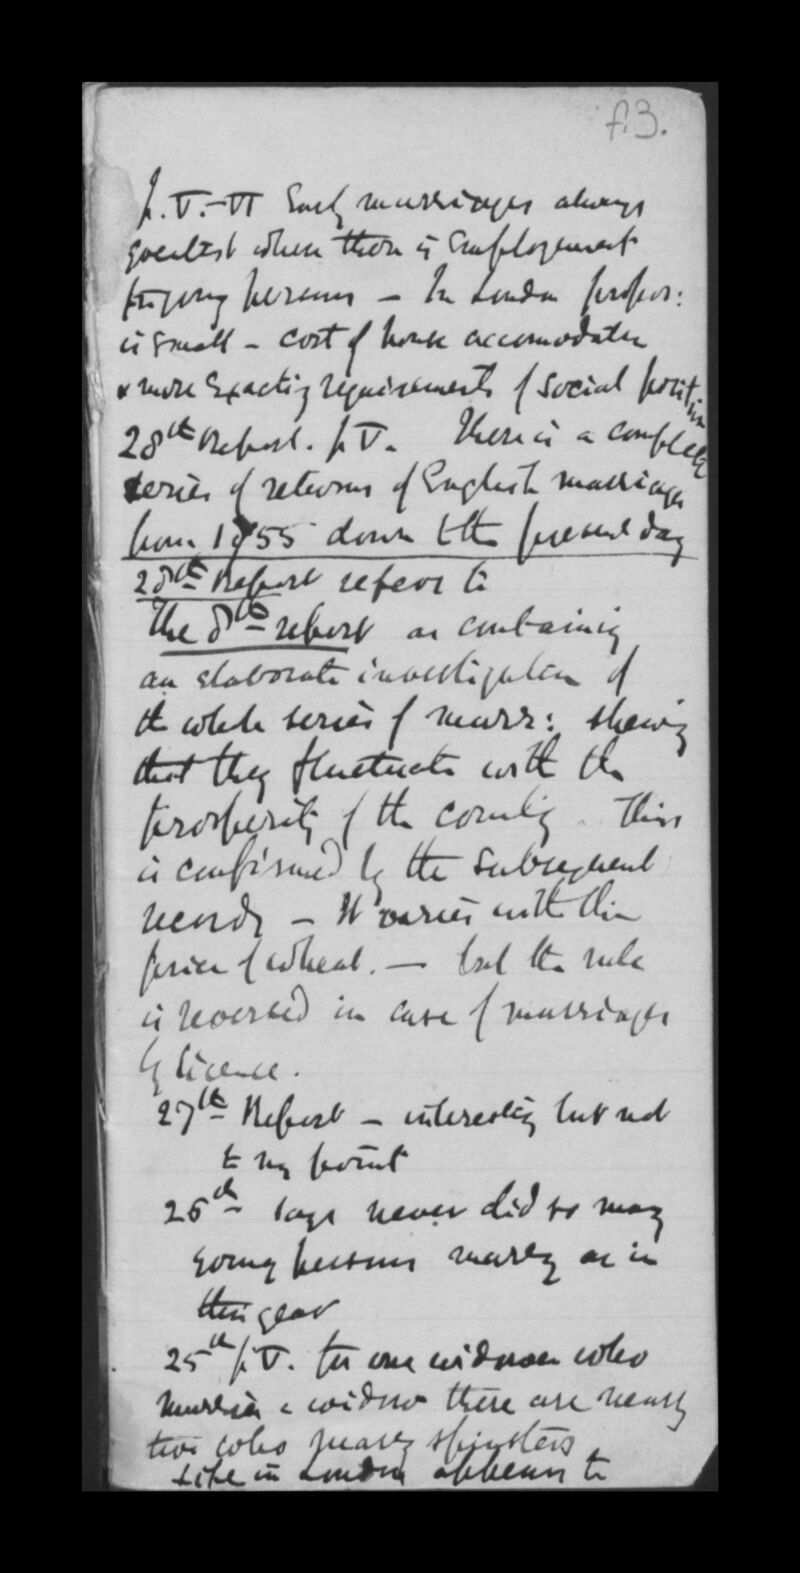 f.3.
p. V.-VI Early marriages always
greatest when there is employement
for young persons - In London propor:
is small - cost of house accomodation
& more exacting requirements of social position
28th Report. p V. There is a complete
series of returns of English marriages
from 1755 down to the present day
28th Report refers to
The 8th report as containing
an elaborate investigation of
the whole series of marr: shewing
that they fluctuate with the
prosperity of the country. This
is confirmed by the subsequent
records - It varies with the
price of wheat. - but the rule
is reversed in case of marriages
by licence.
27th Report - interesting but not
to my point
26th says never did so many
young persons marry as in
this year
25th p V. for one widower who
marries a widow there are nearly
two who marry spinsters
Life in London appears to